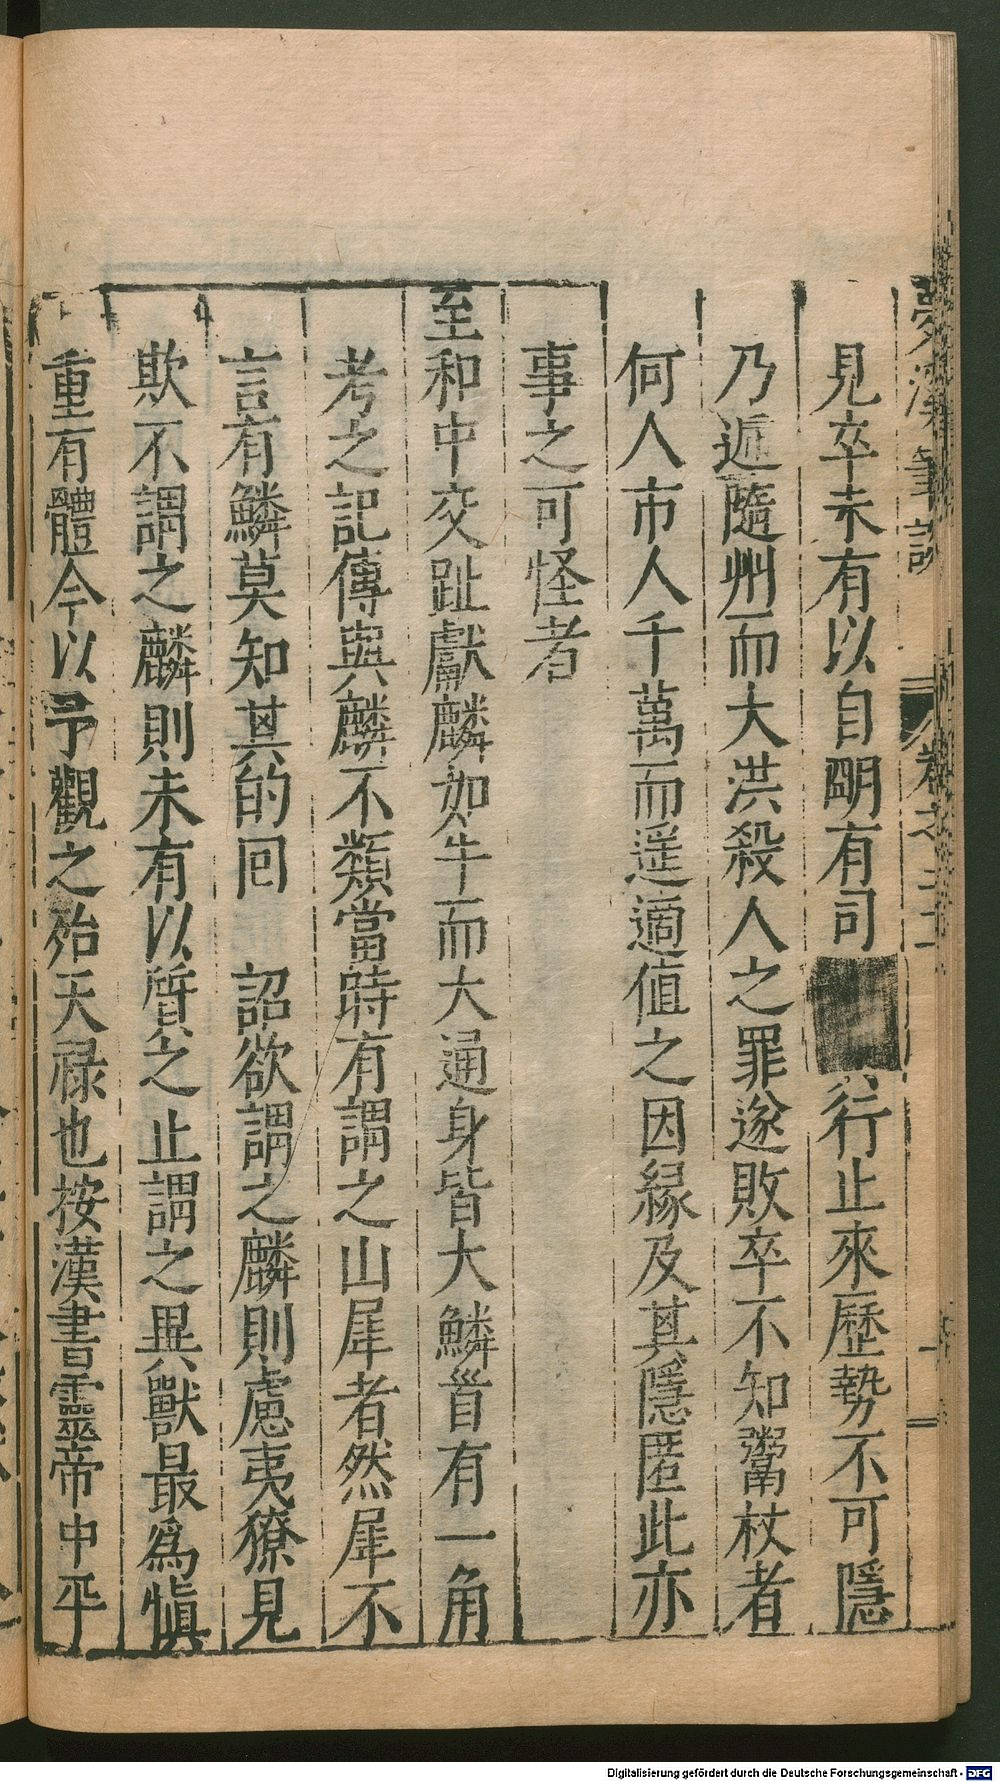 夢溪筆談
卷之二十一
見卒未有以自明有司行止來歷勢不可隱
乃逓隨州而大洪殺人之罪遂敗卒不知鬻杖者
何人市人千萬而遥適值之因緣及其隱匿此亦
事之可怪者
至和中交趾獻麟如牛而大通身皆大鱗首有一角
考之記傳與麟不類當時有謂之山犀者然犀不
言有鱗莫知其的囘 詔欲謂之麟則慮夷獠見
欺不謂之麟則未有以質之止謂之異獸最為慎
重有體今以予觀之殆天禄也按漢書靈帝中平
Digitalisierung gefördert durch die Deutsche Forschungsgemeinschaft - DFG